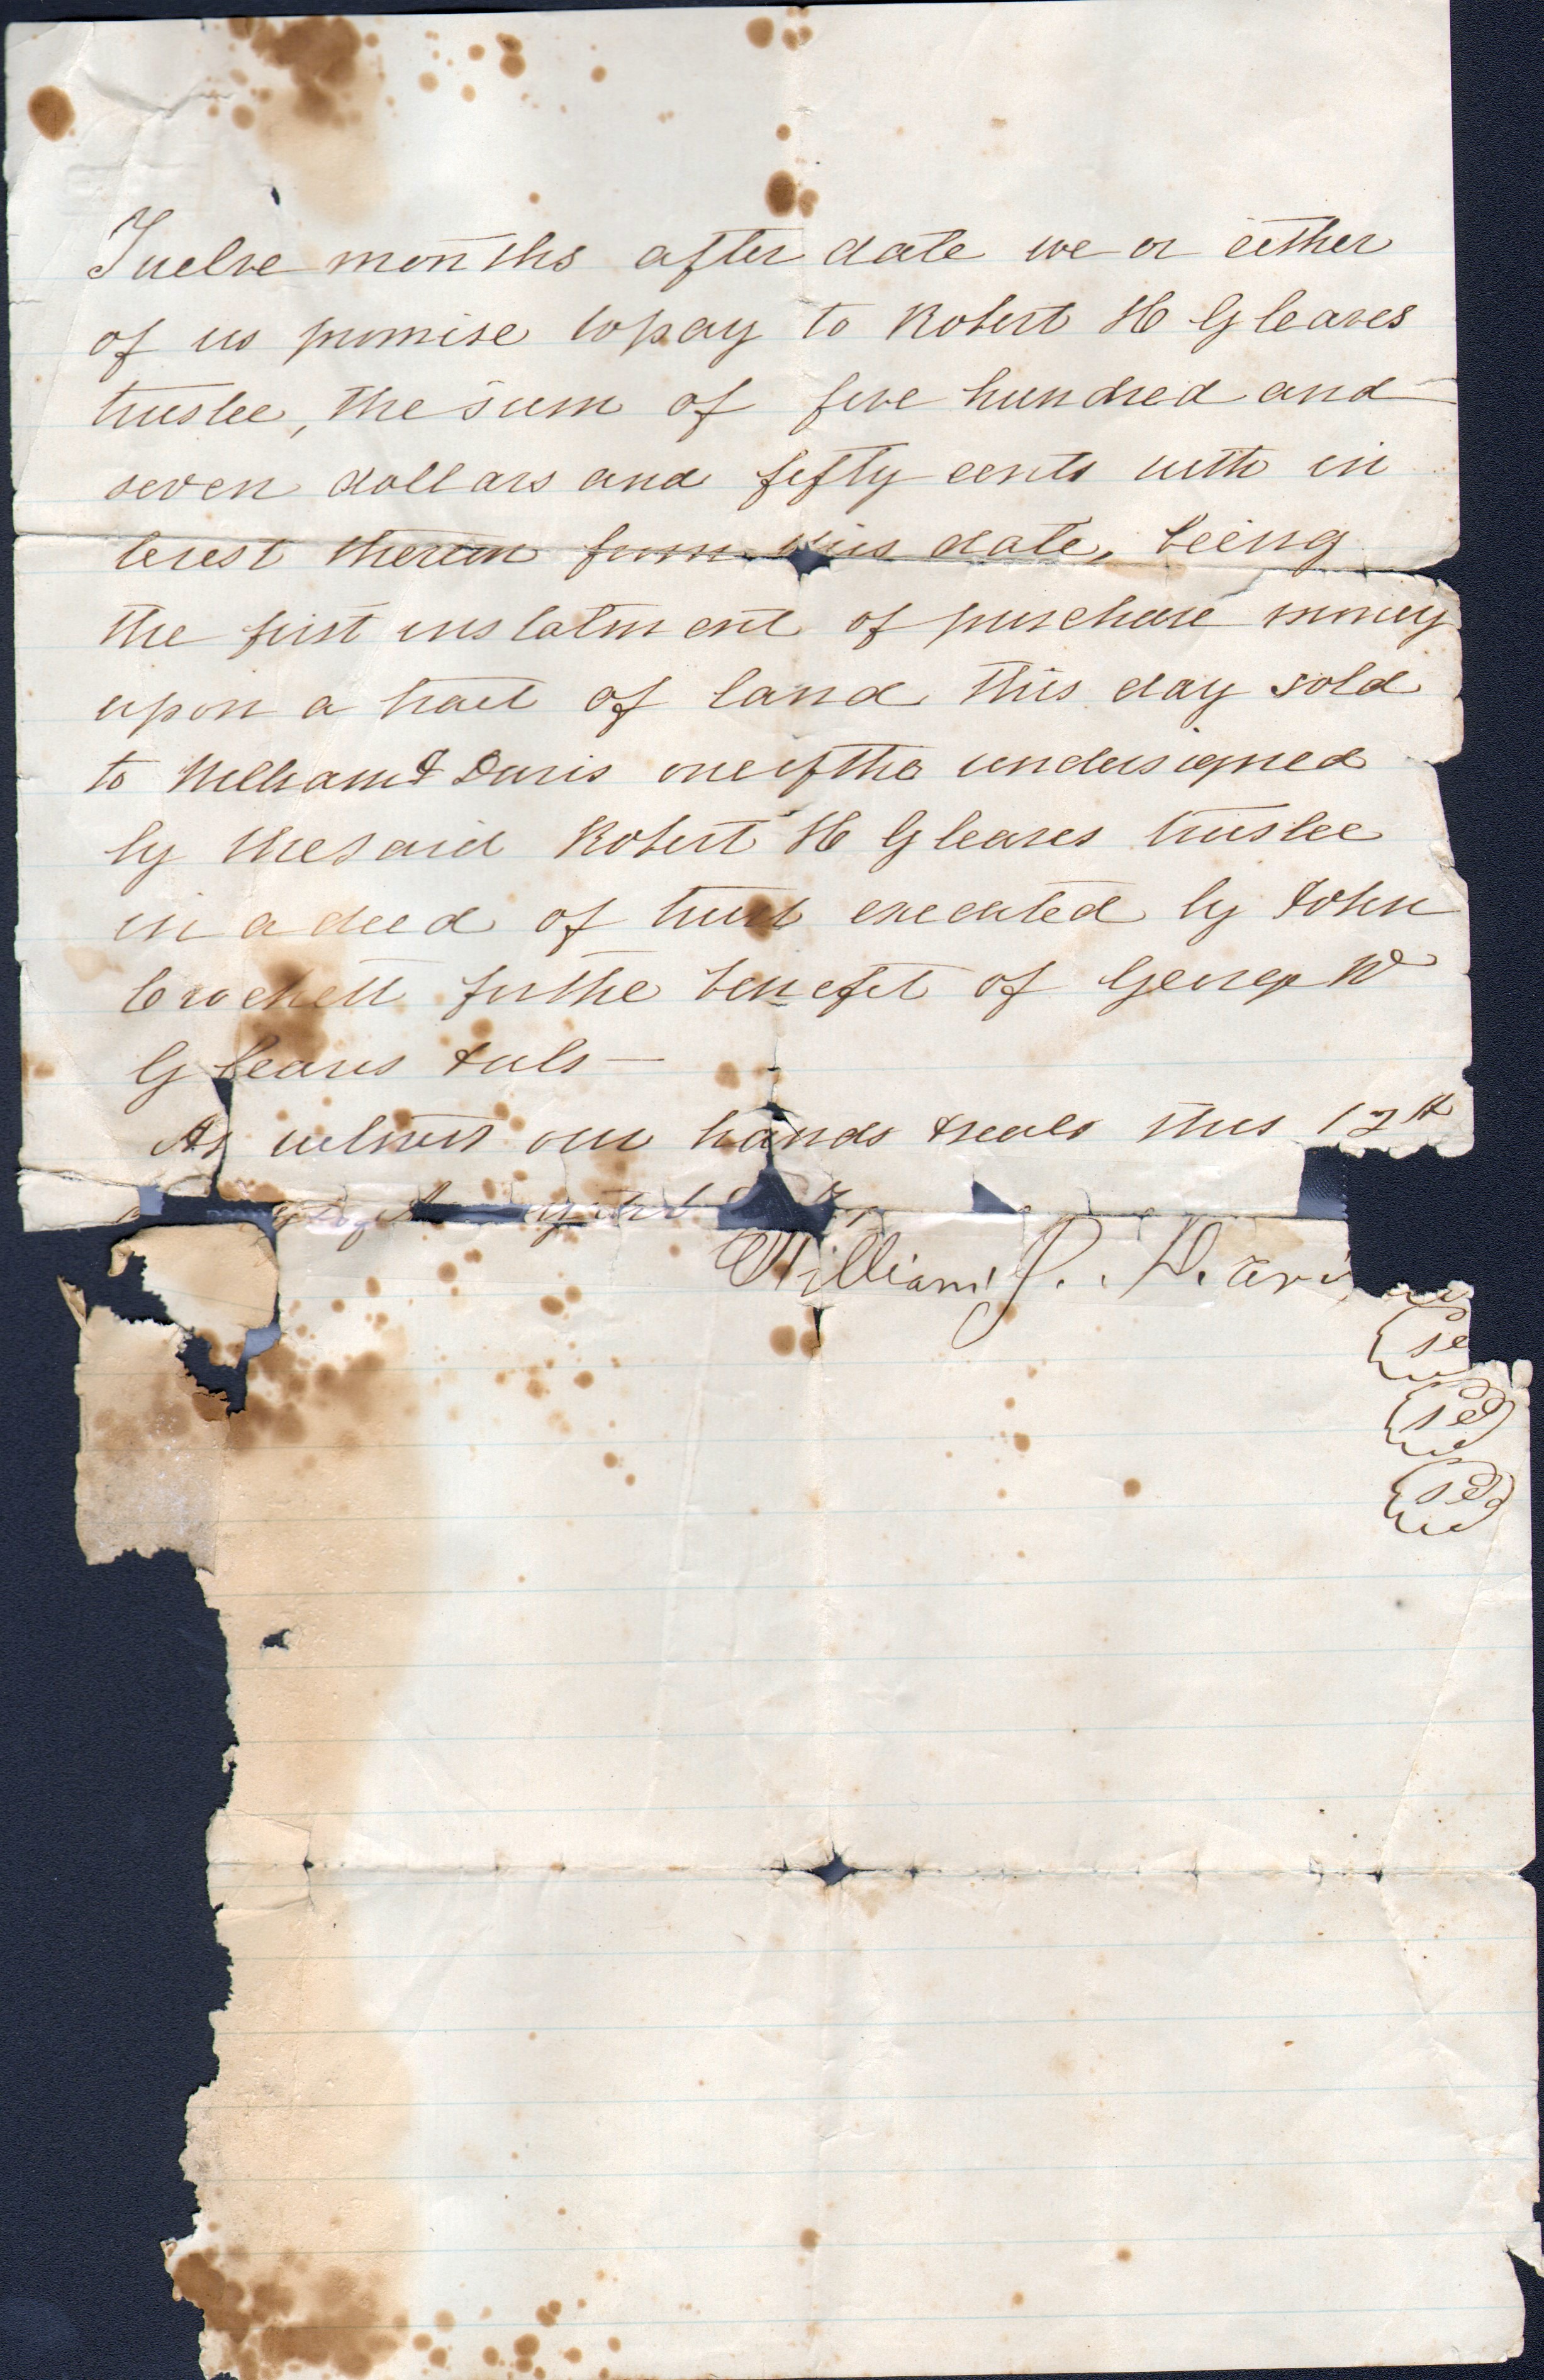 Twelve months after date we or either
of us promise to pay to Robert H Gleaves
trustee, the sum of five hundred and
seven dollars and fifty cents with in
terest thereon from this date, being
the first instalment of purchase money
upon a tract of land this day sold
to William J Davis one of the undersigned
by the said Robert H Gleaves trustee
in a deed of trust executed by John
Crockett for the benefit of George W
Gleaves &als —
As witness our hands & seals this 12th
of August
William J. Davis
se
sel
sel